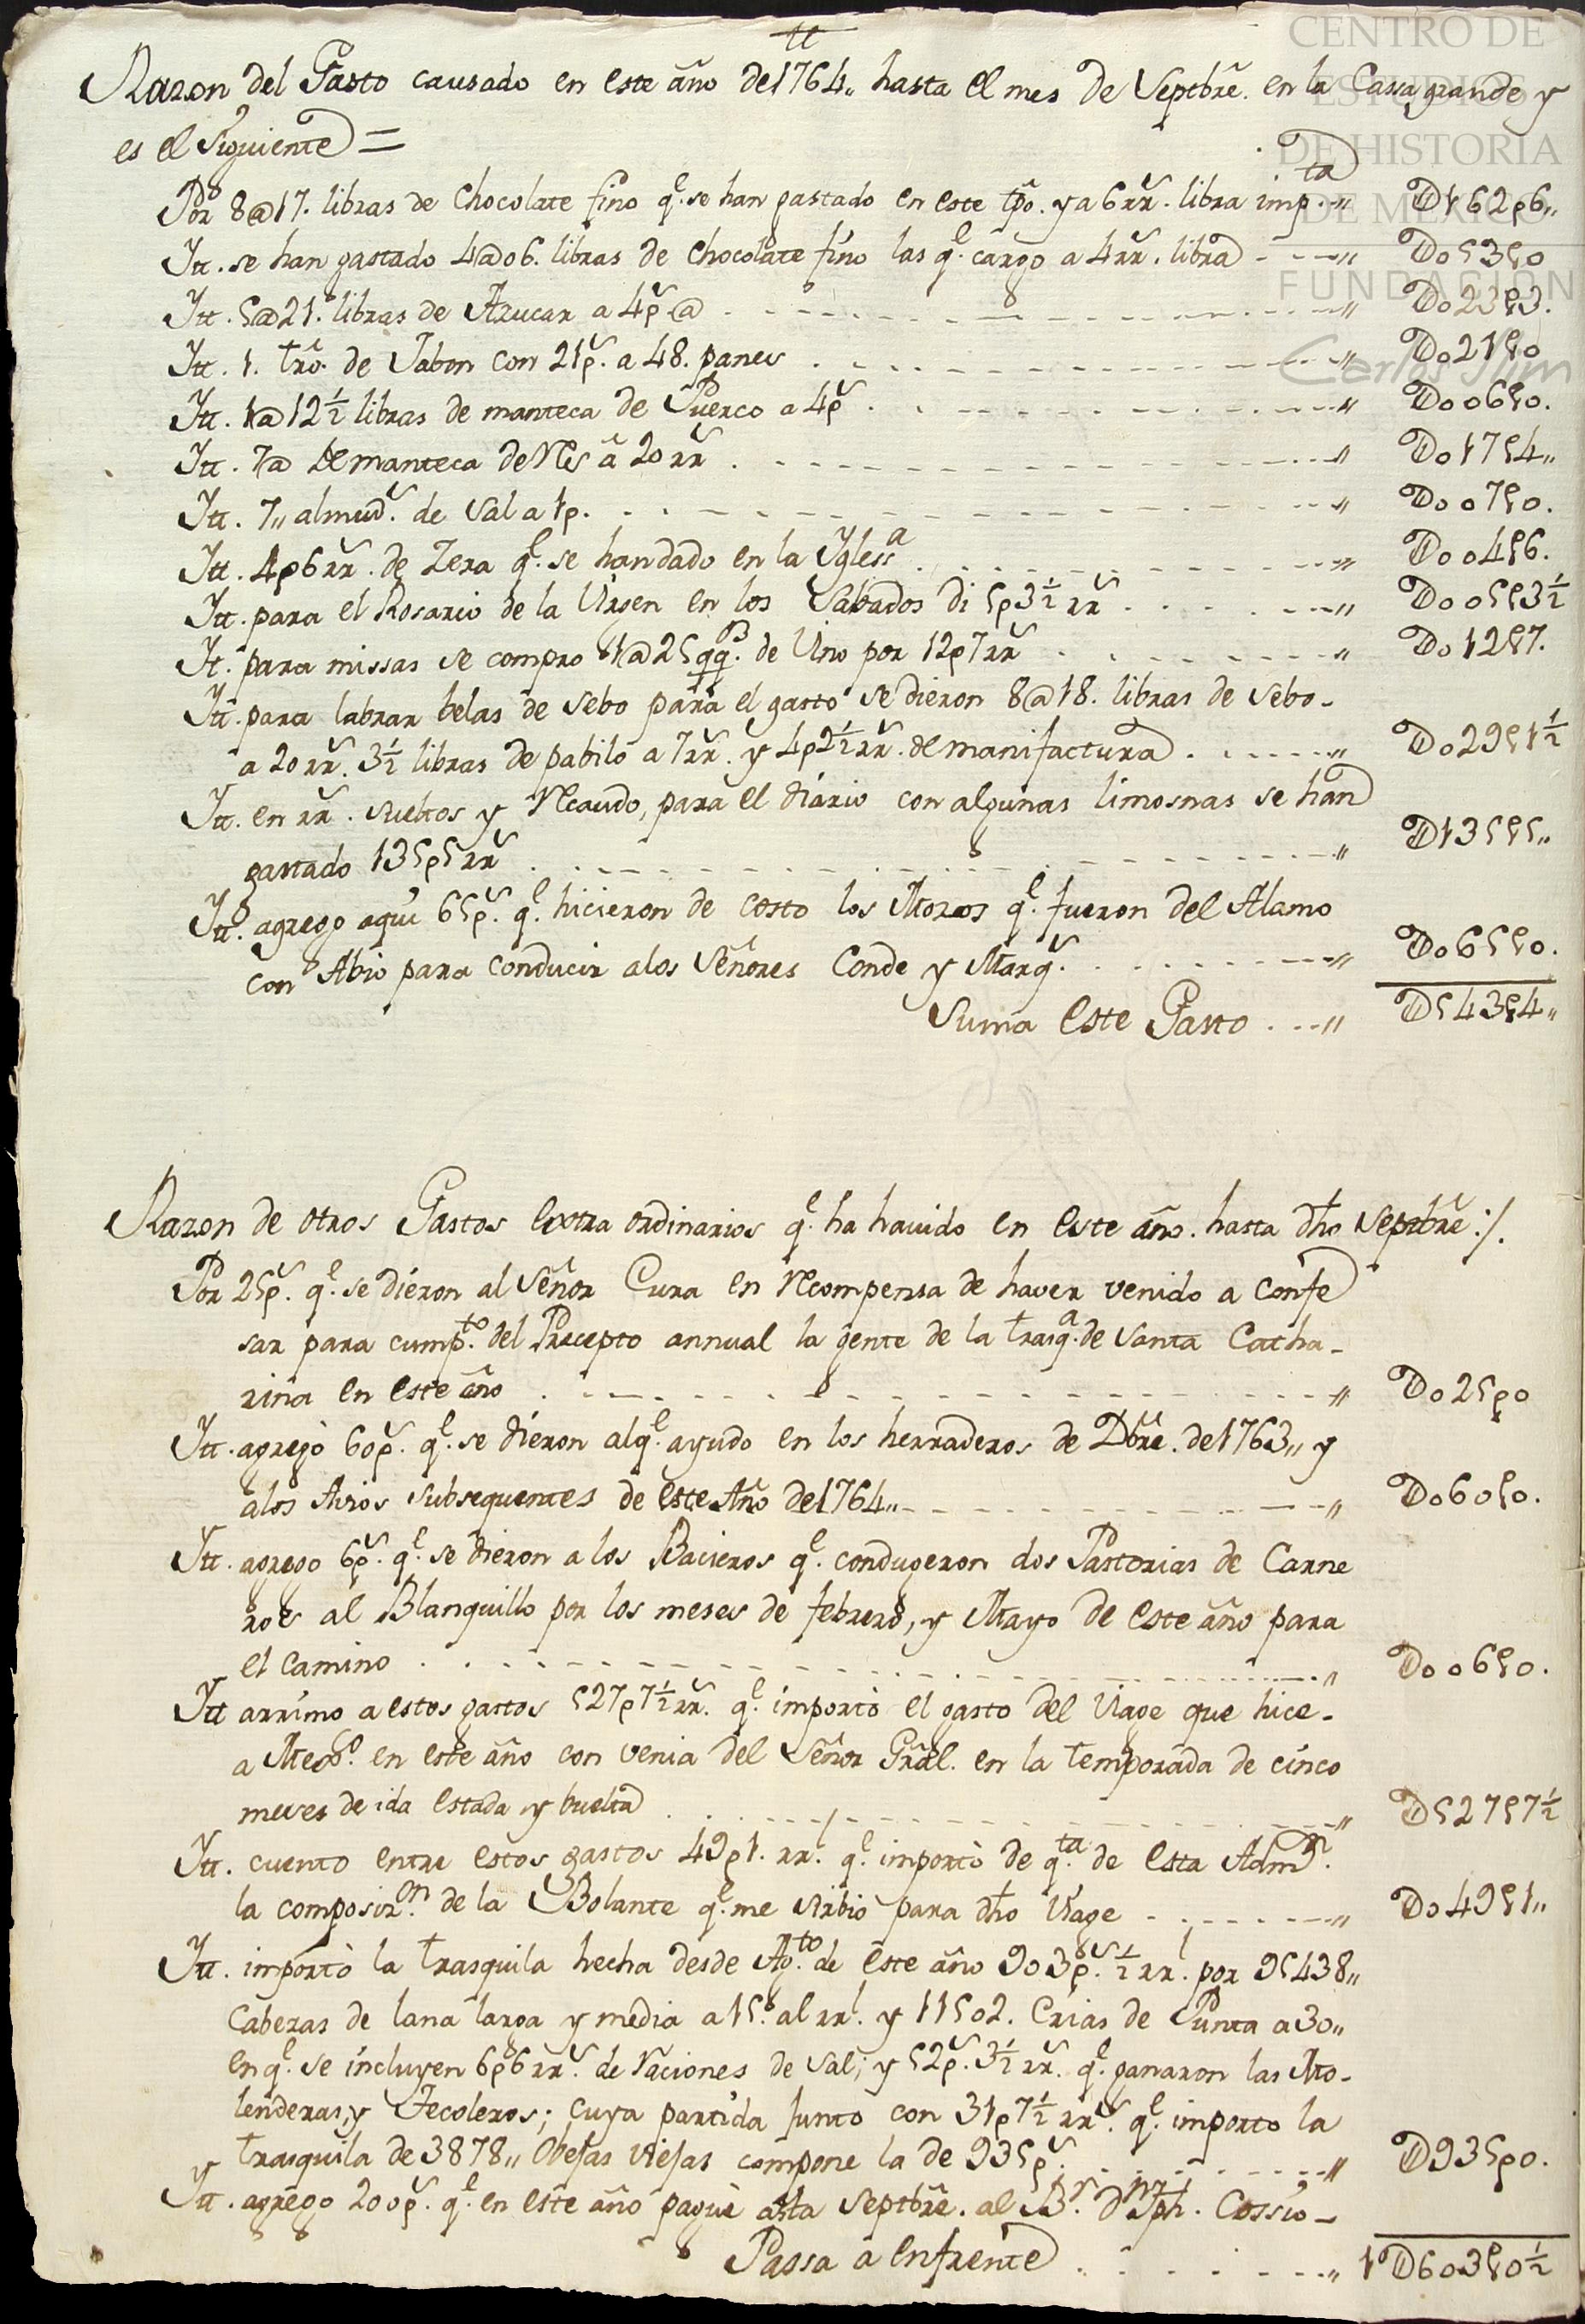 tt
Razon del Gasto causado en este año de 1764,, hasta el mes de Septbrē. en la Cassa grande y
es el Siguiente =
Por 8@17. libras de Chocolate fino q.e se han gastado en este tpō. y a 6 rr.s libra imp.ta ,, D162p6,,
Itt. se han gastado 4@06. libras de Chocolate fino las q.e cargo a 4 rr.s libra - - - ,, D053p0
Itt. 5@21. libras de Azucar a 4p.s @ . - - - ,, D023p3.
Itt. 1. trō. de Jabon con 21p.s a 48. panes . - - - ,, D021p0
Itt. 1@12½ libras de manteca de Puerco a 4p.s . - - - ,, D006p0.
Itt. 7@ de manteca de Res â 20 rr.s . - - - ,, D017p4,,
Itt. 7,, almud.s de Sal a 1p. . - - - ,, D007p0.
Itt. 4p6 rr.s de Zera q.e se han dado en la Igless.a . - - - ,, D004p6.
Itt. para el Rosario de la Virgen en los Sabados di 5p3½ rr.s . - - - ,, D005p3½
It. para missas se compro 1@25 qq.s de Vino por 12p7 rr.s . - - - ,, D012p7.
Itt. para labrar belas de sebo para el gasto se dieron 8@18. libras de sebo -
a 20 rr.s 3½ libras de pabilo a 7 rr.s y 4p2½ rr.s de manifactura . - - - ,, D029p1½
Itt. en rr.s sueltos y Recaudo, para el diario con algunas limosnas se han
gastado 135p5 rr.s . - - - ,, D135p5,,
Itt. agrego aqui 65p.s q.e hicieron de costo los Mozos q.e fueron del Alamo
con Abio para conducir alos Señores Conde y Marq.s . - - - ,, D065p0.
Suma este Gasto . - - ,, D543p4,,
Razon de otros Gastos extra ordinarios q.e ha havido en este año. hasta dhō Septbrē :/.
Por 25p.s q.e se dieron al Señor Cura en Recompensa de haver venido a confe
sar para cump.to del Precepto annual la gente de la trasq.a de Santa Catha-
rina en este año . - - - ,, D025p0
Itt. agregò 60p.s q.e se dieron alq.e ayudo en los herraderos de Dbrē. de 1763,, y
alos Avios subsequentes de este Año de 1764,, - - - ,, D060p0.
Itt. agrego 6p.s q.e se dieron a los Bacieros q.e condugeron dos Pastorias de Carne
ros al Blanquillo por los meses de febrero, y Mayo de este año para
el camino . - - - ,, D006p0.
Itt arrimo a estos gastos 527p7½ rr.s q.e importò el gasto del Viage que hice-
a Mexco. en este año con venia del Señor Grāl. en la temporada de cinco
meses de ida estada y buelta . - - - ,, D527p7½
Itt. cuento entre estos gastos 49p1. rr.l q.e importò de q.ta de esta Adm.n
la composiz.on de la Bolante q.e me sirbio para dhō Viage - - - ,, D049p1,,
Itt. importò la trasquila hecha desde Ag.to de este año 903p.s ½ rr.l por 95438,,
Cabezas de lana larga y media a 15.s al rr.l y 11502. Crias de Punta a 30,,
en q.e se incluyen 6p6 rr.s de raciones de Sal; y 52p.s 3½ rr.s q.e ganaron las Mo-
lenderas, y Tecoleros; cuya partida junto con 31p7½ rr.s q.e importo la
trasquila de 3878,, Obejas viejas compone la de 935p.s . - - - ,, D935p0.
Itt. agrego 200p.s q.e en este año paguè asta Septbrē. al B.r D.n Jph. Cossio -
Passa a enfrente . - - - ,, 1D603p0½
CENTRO DE
ESTUDIOS
DE HISTORIA
DE MÉXICO
FUNDACIÓN
Carlos Slim